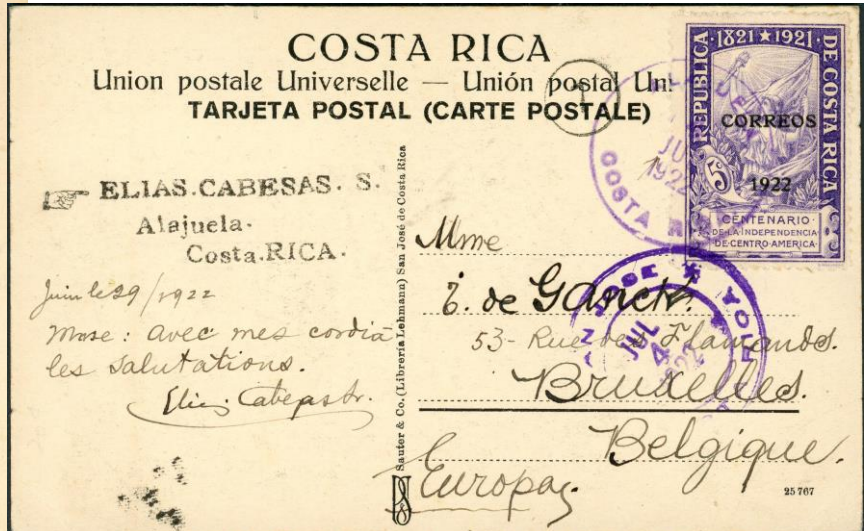 COSTA RICA
Union postale Universelle — Unión postal Uni
TARJETA POSTAL (CARTE POSTALE)
T
ELIAS.CABESAS. S.
Alajuela.
Costa.RICA.
29/1922
Mme: avec mes cordia
les salutations.
Sauter & Co. (Libreria Lehmann) San José de Costa Rica
Mme
de
53- Rue des Flamands.
Bruxelles.
Belgique.
Europa
25767
REPUBLICA DE COSTA RICA
1821 ★ 1921
CORREOS
5
1922
CENTENARIO
DE LA INDEPENDENCIA
DE CENTRO AMERICA
1922
COSTA RICA
SAN JOSE
JUL
4
1922